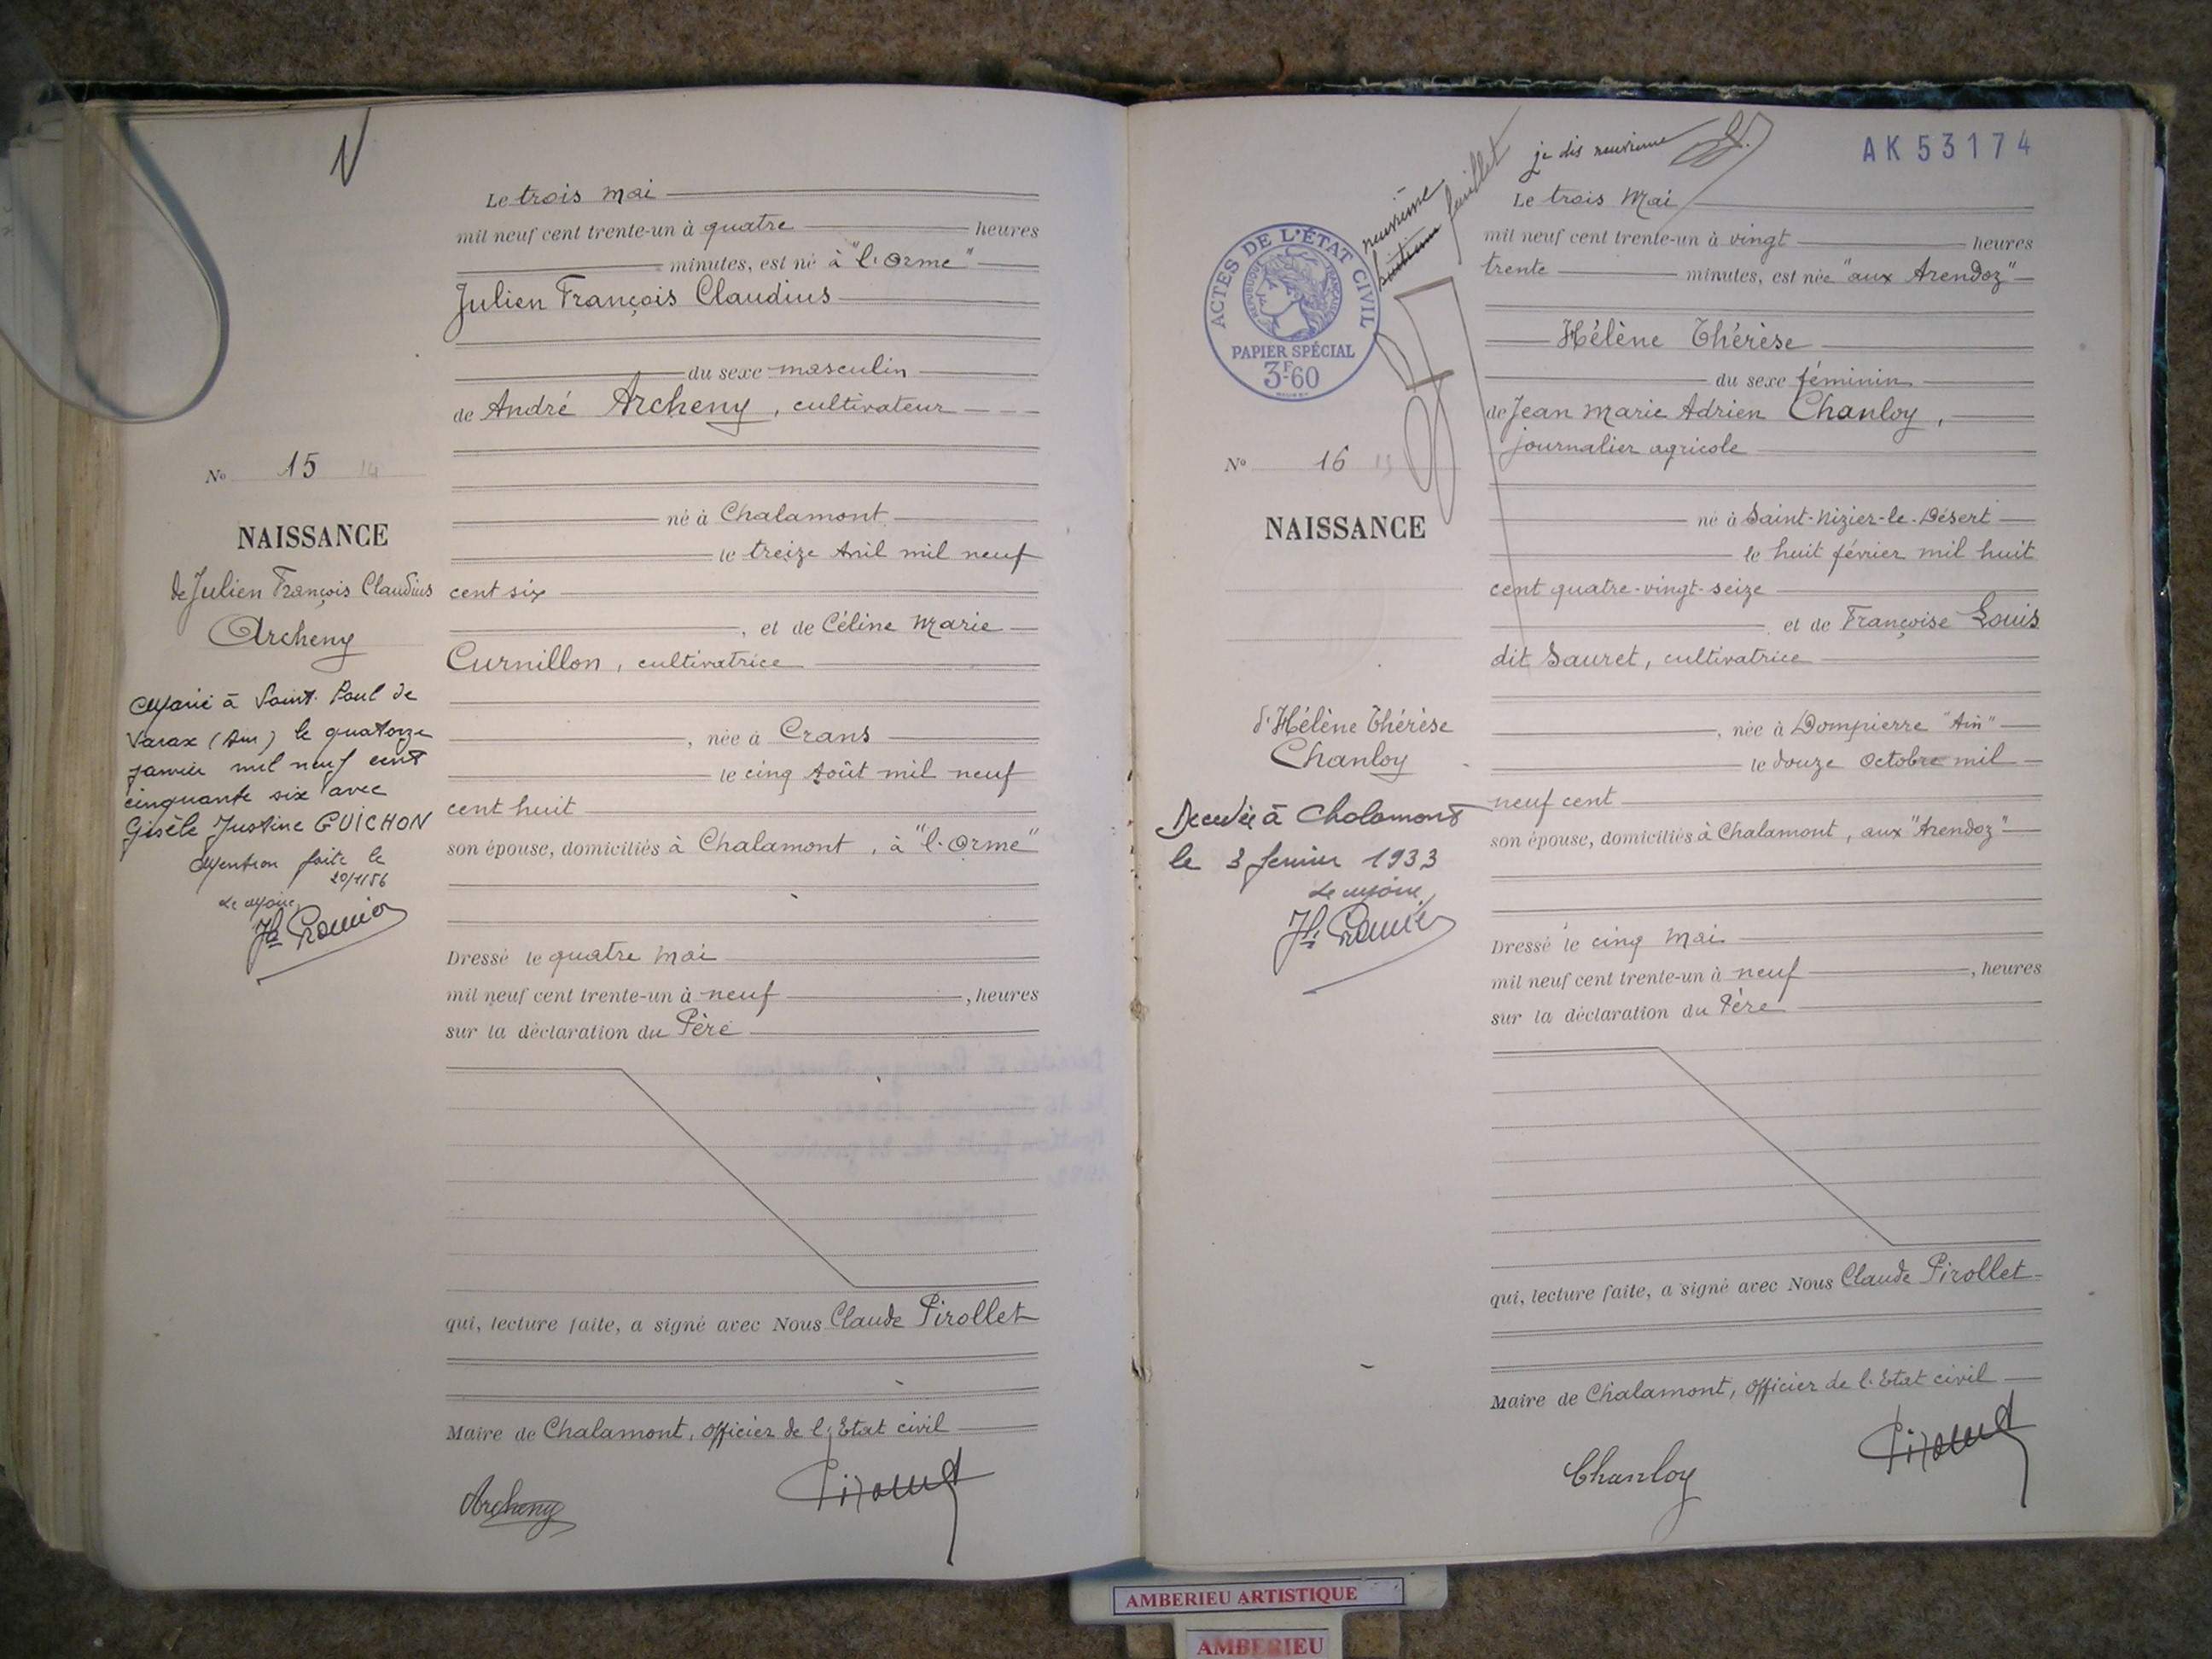 Le trois mai
mil neuf cent trente-un à quatre heures
minutes, est né à "l'Orme"
Julien François Claudius
du sexe masculin
de André Archeny, cultivateur
né à Chalamont
le treize Avril mil neuf
cent six
, et de Céline Marie
Curnillon, cultivatrice
, née à Crans
le cinq Août mil neuf
cent huit
son épouse, domiciliés à Chalamont, à "l'Orme"
Dressé le quatre mai
mil neuf cent trente-un à neuf , heures
sur la déclaration du Père
qui, lecture faite, a signé avec Nous Claude Pirollet
Maire de Chalamont, Officier de l'Etat civil
Archeny
No 15 14
NAISSANCE
de Julien François Claudius
Archeny
Marié à Saint-Paul de
Varax (Ain) le quatorze
janvier mil neuf cent
cinquante six avec
Gisèle Justine GUICHON
Mention faite le
20/1/56
Le Maire,
AK 53174
je dis neuvième
neuvième feuillet
ACTES DE L'ÉTAT CIVIL
RÉPUBLIQUE FRANÇAISE
PAPIER SPÉCIAL
3F60
Le trois Mai
mil neuf cent trente-un à vingt heures
trente minutes, est née "aux Arendoz"
Hélène Thérèse
du sexe féminin
de Jean Marie Adrien Chanloy,
journalier agricole
né à Saint-Nizier-le-Désert
le huit février mil huit
cent quatre-vingt-seize
et de Françoise Louis
dit Sauret, cultivatrice
, née à Dompierre "Ain"
le douze Octobre mil
neuf cent
son épouse, domiciliés à Chalamont, aux "Arendoz"
Dressé le cinq Mai
mil neuf cent trente-un à neuf , heures
sur la déclaration du Père
qui, lecture faite, a signé avec Nous Claude Pirollet
Maire de Chalamont, Officier de l'Etat civil
Chanloy
No 16
NAISSANCE
d'Hélène Thérèse
Chanloy
Decedée à Chalamont
le 3 fevrier 1933
Le Maire,
AMBERIEU ARTISTIQUE
AMBERIEU